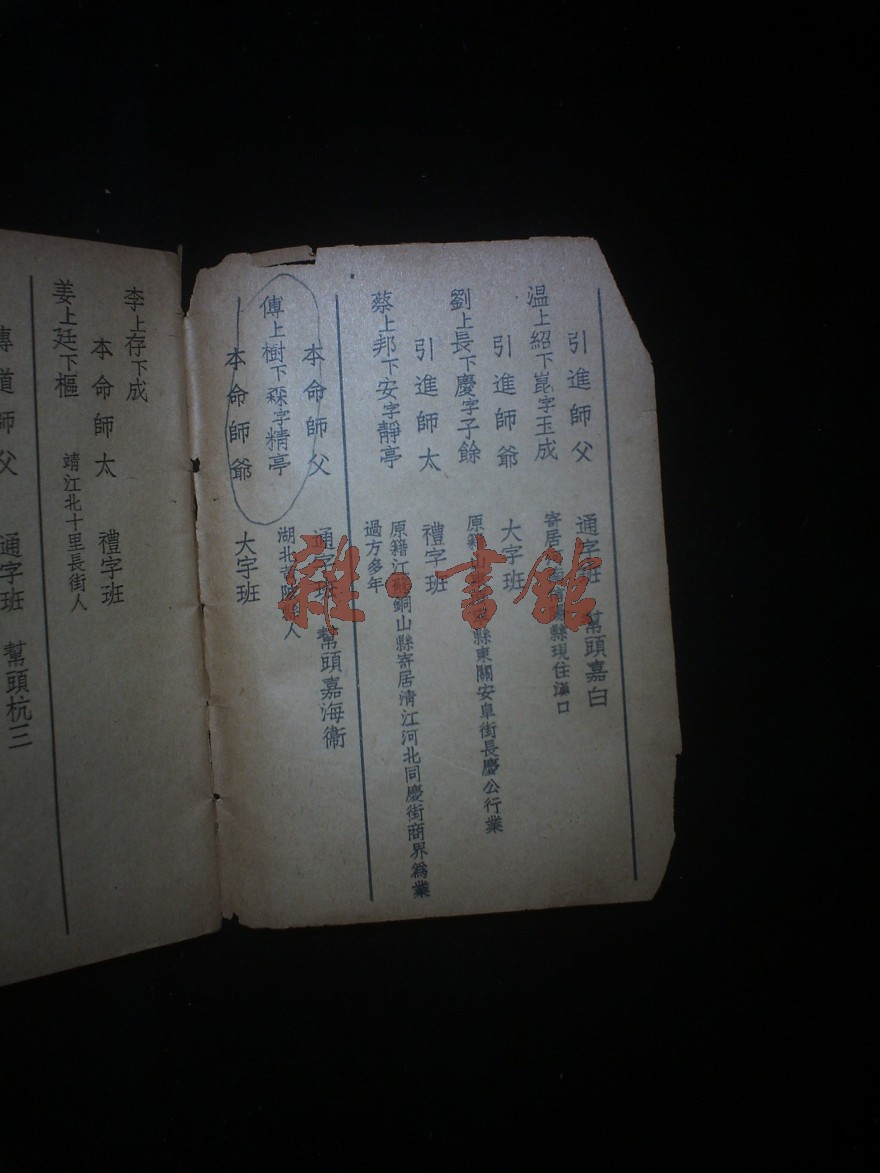 引進師父 通字班 幫頭嘉白
温上紹下崑字玉成 寄居 縣現住漢口
引進師爺 大字班
劉上長下慶字子餘 原籍山 縣東關安阜街長慶公行業
引進師太 禮字班
蔡上邦下安字靜亭 原籍江蘇銅山縣寄居清江河北同慶街商界爲業
過方多年
本命師父 通字班 幫頭嘉海衞
傅上樹下森字精亭 湖北 人
本命師爺 大字班
李上存下成
本命師太 禮字班
姜上廷下樞 靖江北十里長街人
傳道師父 通字班 幫頭杭三
雜·書舘